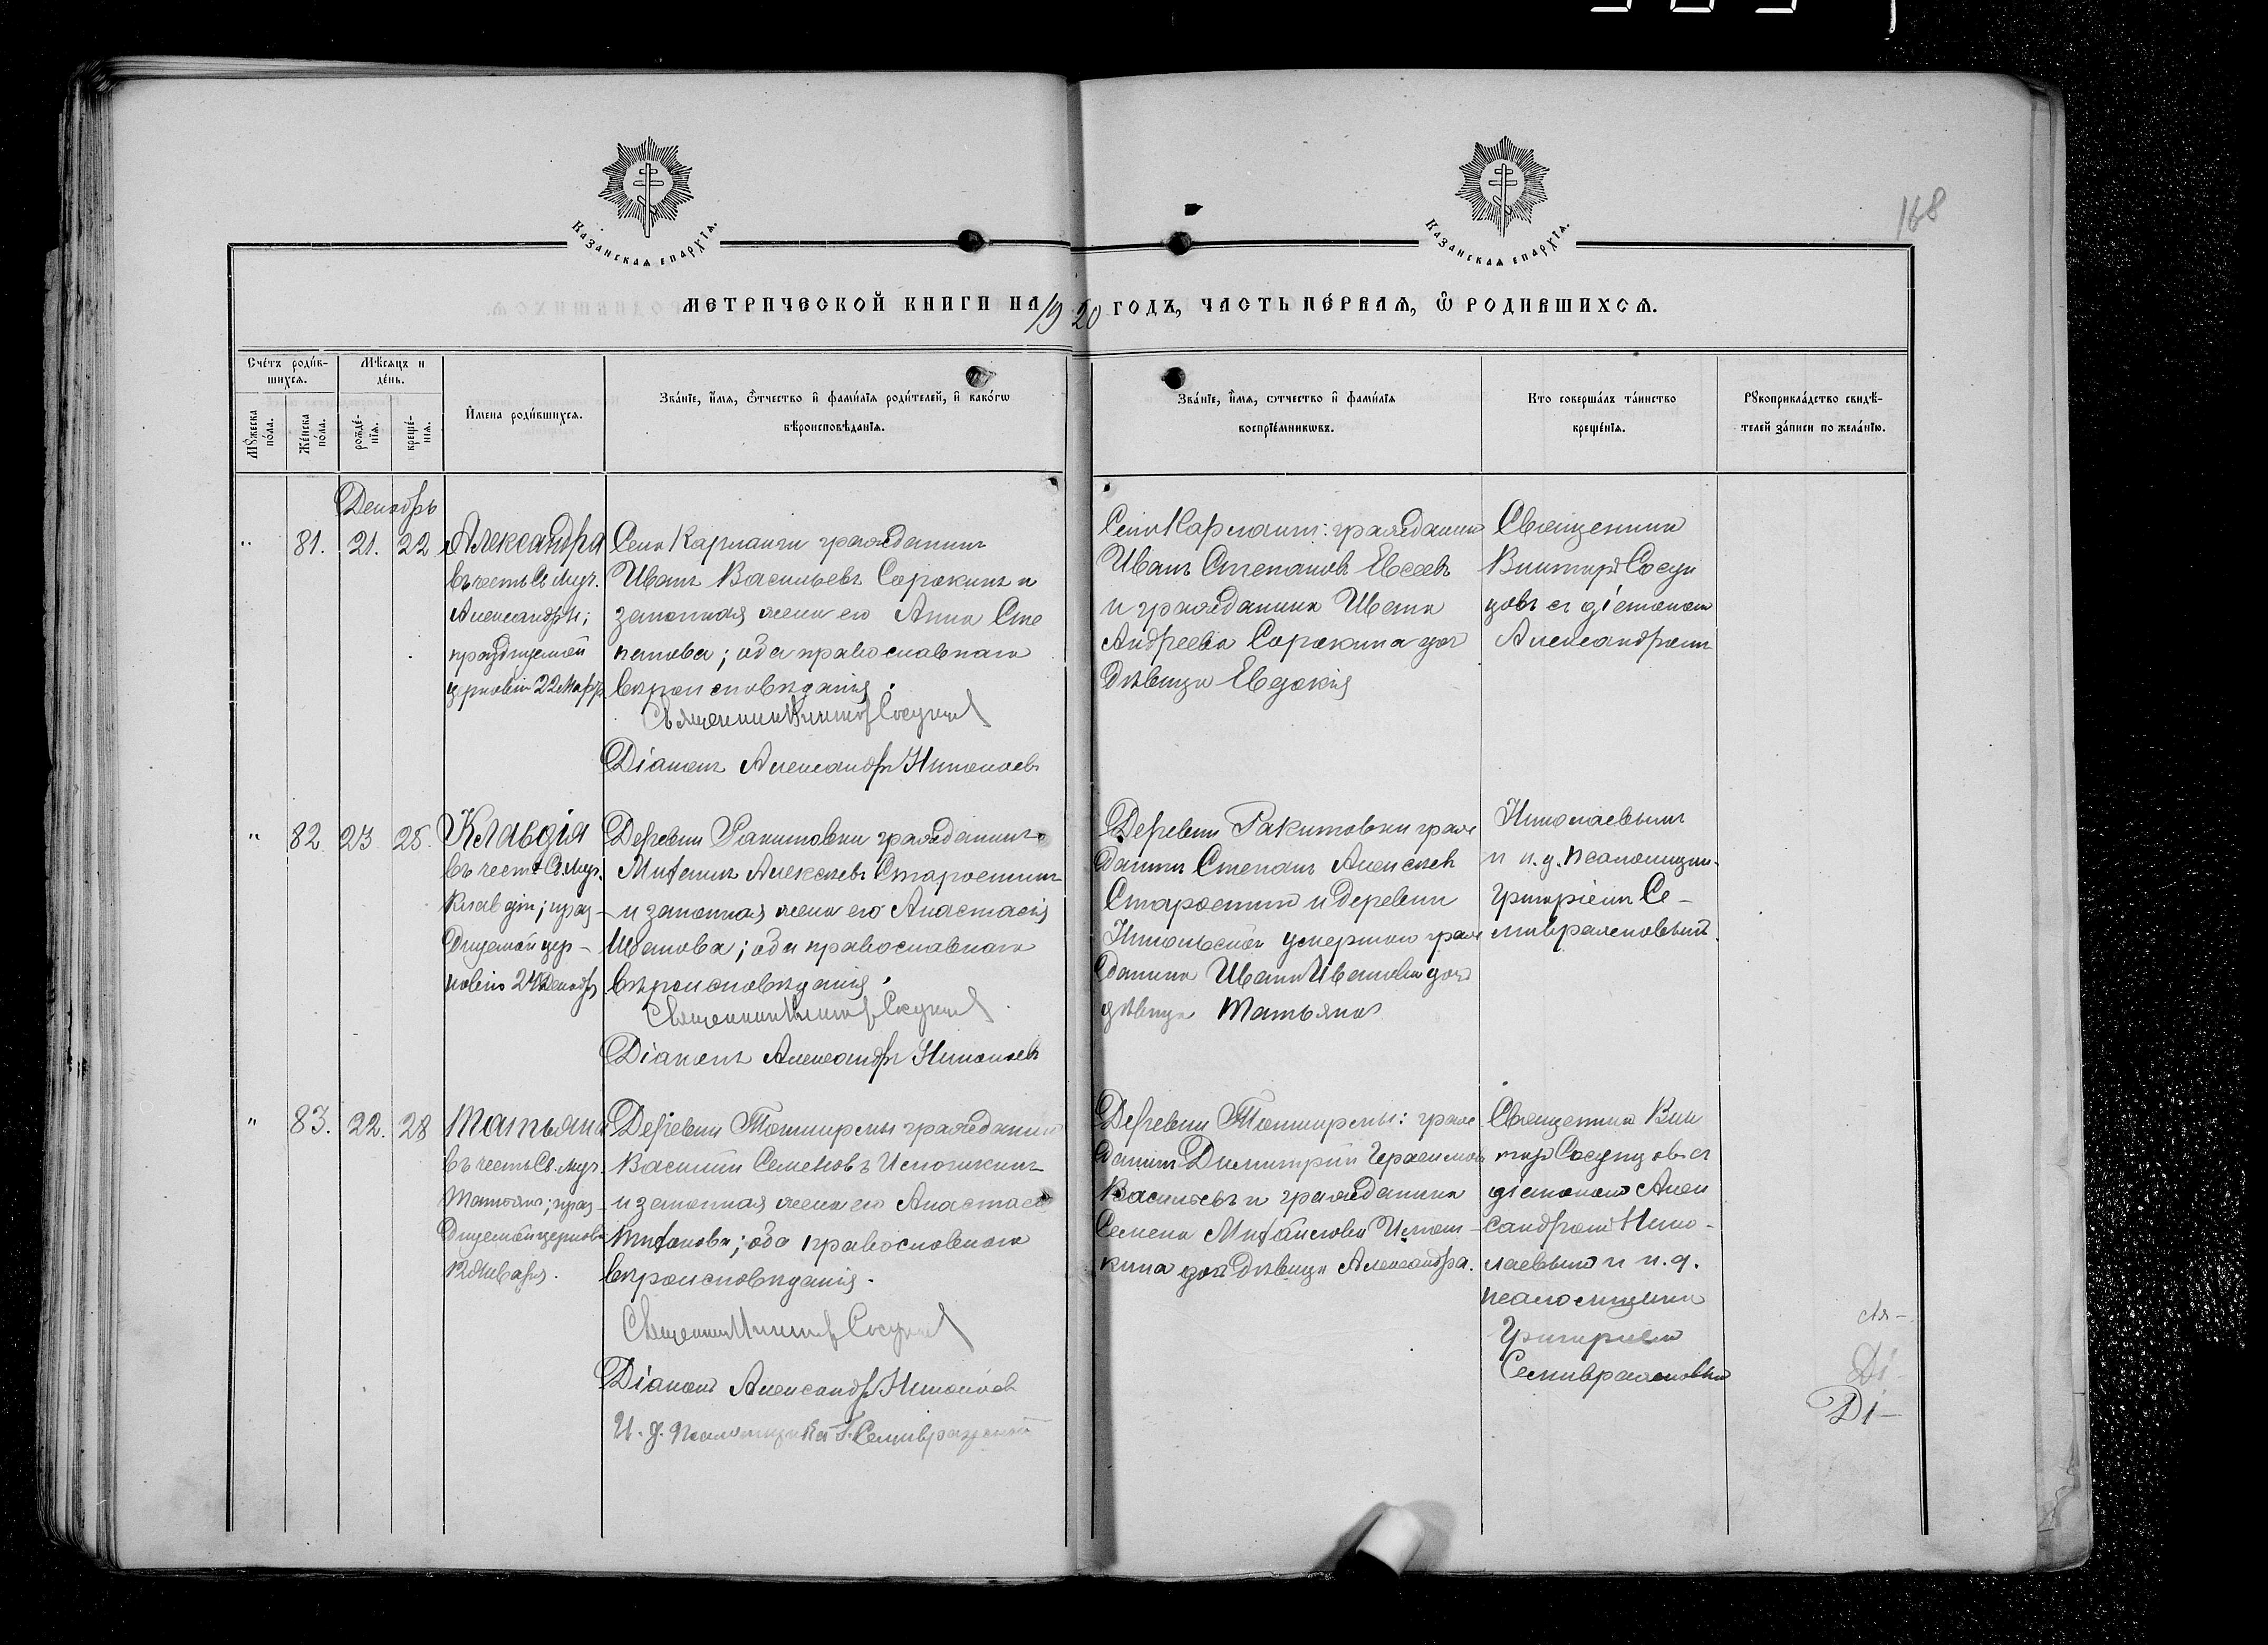 168
Казанская епархїя.
Казанская епархїя.
МЕТРИЧЕСКОЙ КНИГИ НА 1920 ГОДЪ, ЧАСТЬ ПЕ́РВАЯ, Ѡ РОДИВШИХСЯ.
Сче́тъ роди́в-
шихся.
Мѣ́сяцъ и
де́нь.
Мꙋ́жеска
по́ла.
Же́нска
по́ла.
рожде́-
нїя.
креще́-
нїя.
И҆мена роди́вшихся.
Зва́нїе, и҆́мя, ѻ҆́тчество и҆ фами́лїя роди́телей, и҆ како́гѡ
вѣроисповѣ́данїя.
Зва́нїе, и҆́мя, ѻтчество и҆ фами́лїя
воспрїе́мникѡвъ.
Кто соверша́лъ та́инство
креще́нїя.
Рꙋкоприкла́дство свидѣ́-
телей за́писи по жела́нїю.
Декабрь
" 81. 21. 22 Александра
въ честь Св. Муч.
Александры;
празднуемой
церковію 22 Мар
Села Карланги гражданинъ
Иванъ Васильевъ Сорокинъ и
законная жена его Анна Сте
панова; оба православнаго
вѣроисповѣданія.
Священникъ Виктор Сосунцов
Діаконъ Александръ Николаевъ
Села Карланги: гражданин
Иванъ Степановъ Евсеевъ
и гражданина Ивана
Андреева Сорокина доч
дѣвица Евдокія
Священник
Виктор Сосун
цовъ съ діаконом
Александром
" 82 23 25. Клавдія
въ честь Св. Муч.
Клавдіи; праз-
днуемой цер-
ковію 24 Декабр
Деревни Ракитовки гражданинъ
Михаилъ Алексѣевъ Старостинъ
и законная жена его Анастасія
Иванова; оба православнаго
вѣроисповѣданія.
Священникъ Виктор Сосунцов
Діаконъ Александръ Николаевъ
Деревни Ракитовки граж
данин Степанъ Алексѣев
Старостин и деревни
Никольской умершаго граж
данина Ивана Иванова доч
дѣвица Татьяна
Николаевымъ
и и. д. псаломщик.
Григоріемъ Се-
мивраженовым.
" 83. 22. 28 Татьяна
въ честь Св. Муч.
Татьяны; праз-
днуемой церков
12 Января.
Деревни Тошкирмы гражданин
Василій Семеновъ
и законная жена его Анастас
оба православнаго
вѣроисповѣданія.
Священникъ Виктор Сосунцов
Діаконъ Александръ Николаев
И. д. Псаломщика Г. Семивраженов
Деревни Тошкирмы: граж
данинъ Димитрій Герасимов
Васильевъ и гражданина
Семена Михайлова
кина доч дѣвица Александра.
Священник Вик
тор Сосунцовъ съ
діаконом Алек
сандром Нико-
лаевым и и. д.
псаломщика
Григоріем
Семивраженовым
Ді
Ді-